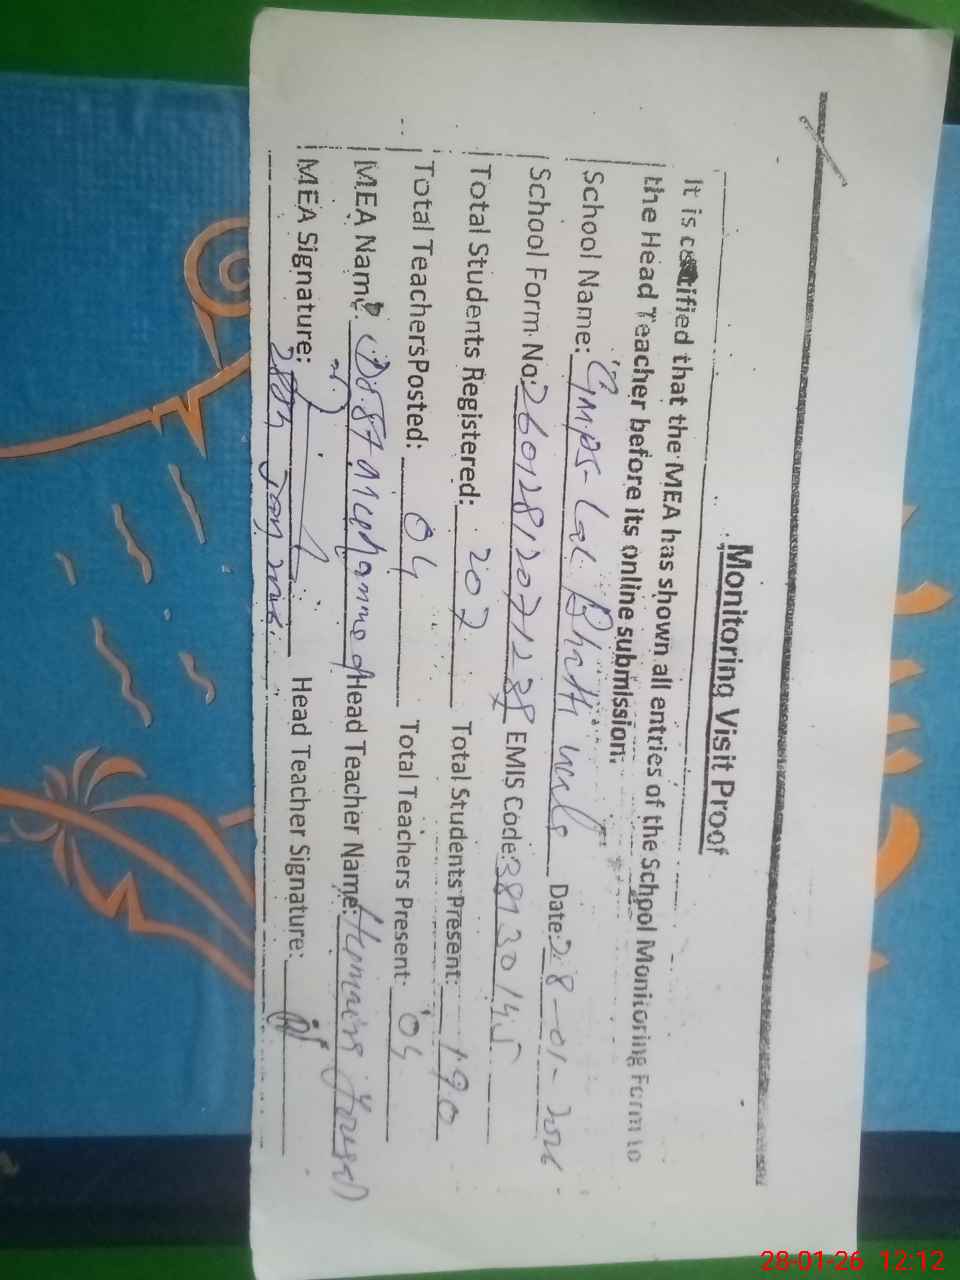 Monitoring Visit Proof
It is certified that the MEA has shown all entries of the School Monitoring Form to
the Head Teacher before its online submission.
School Name: GMPS-Lal Bhatti Date: 28-01-2026
School Form No: EMIS Code: 38130145
Total Students Registered: 207 Total Students Present: 190
Total TeachersPosted: 04 Total Teachers Present: 04
MEA Name: Muhammad Head Teacher Name: Humaira Yousaf
MEA Signature: Head Teacher Signature:
28th Jan, 2026.
28-01-26 12:12